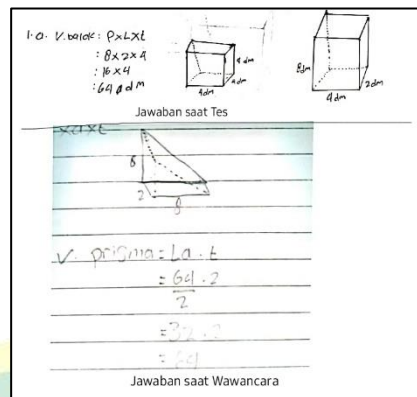 1.a. V.balok : P x L x t
: 8 x 2 x 4
: 16 x 4
: 64 dm
4 dm
4 dm
4 dm
8 dm
2 dm
4 dm
Jawaban saat Tes
8
2
8
V. prisma = La . t
= 64 . 2
2
= 32 . 2
= 64
Jawaban saat Wawancara